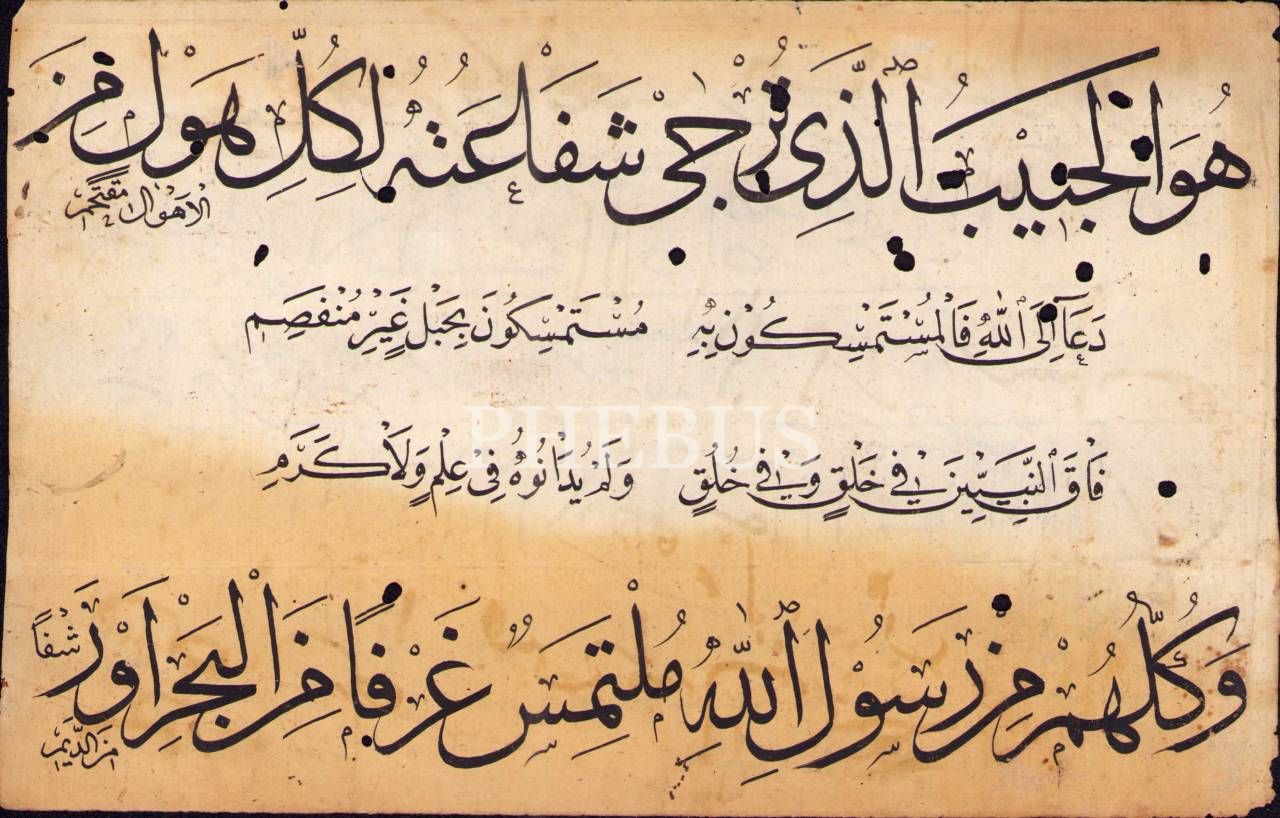 هُوَ الْحَبِيبُ الَّذِي تُرْجَى شَفَاعَتُهُ لِكُلِّ هَوْلٍ مِنَ
الْأَهْوَالِ مُقْتَحَمِ
دَعَا إِلَى اللهِ فَالْمُسْتَمْسِكُونَ بِهِ مُسْتَمْسِكُونَ بِحَبْلٍ غَيْرِ مُنْفَصِمِ
PHEBUS
فَاقَ النَّبِيِّينَ فِي خَلْقٍ وَفِي خُلُقٍ وَلَمْ يُدَانُوهُ فِي عِلْمٍ وَلَا كَرَمِ
وَكُلُّهُمْ مِنْ رَسُولِ اللهِ مُلْتَمِسٌ غَرْفًا مِنَ الْبَحْرِ اَوْ رَشْفًا
مِنَ الدِّيَمِ